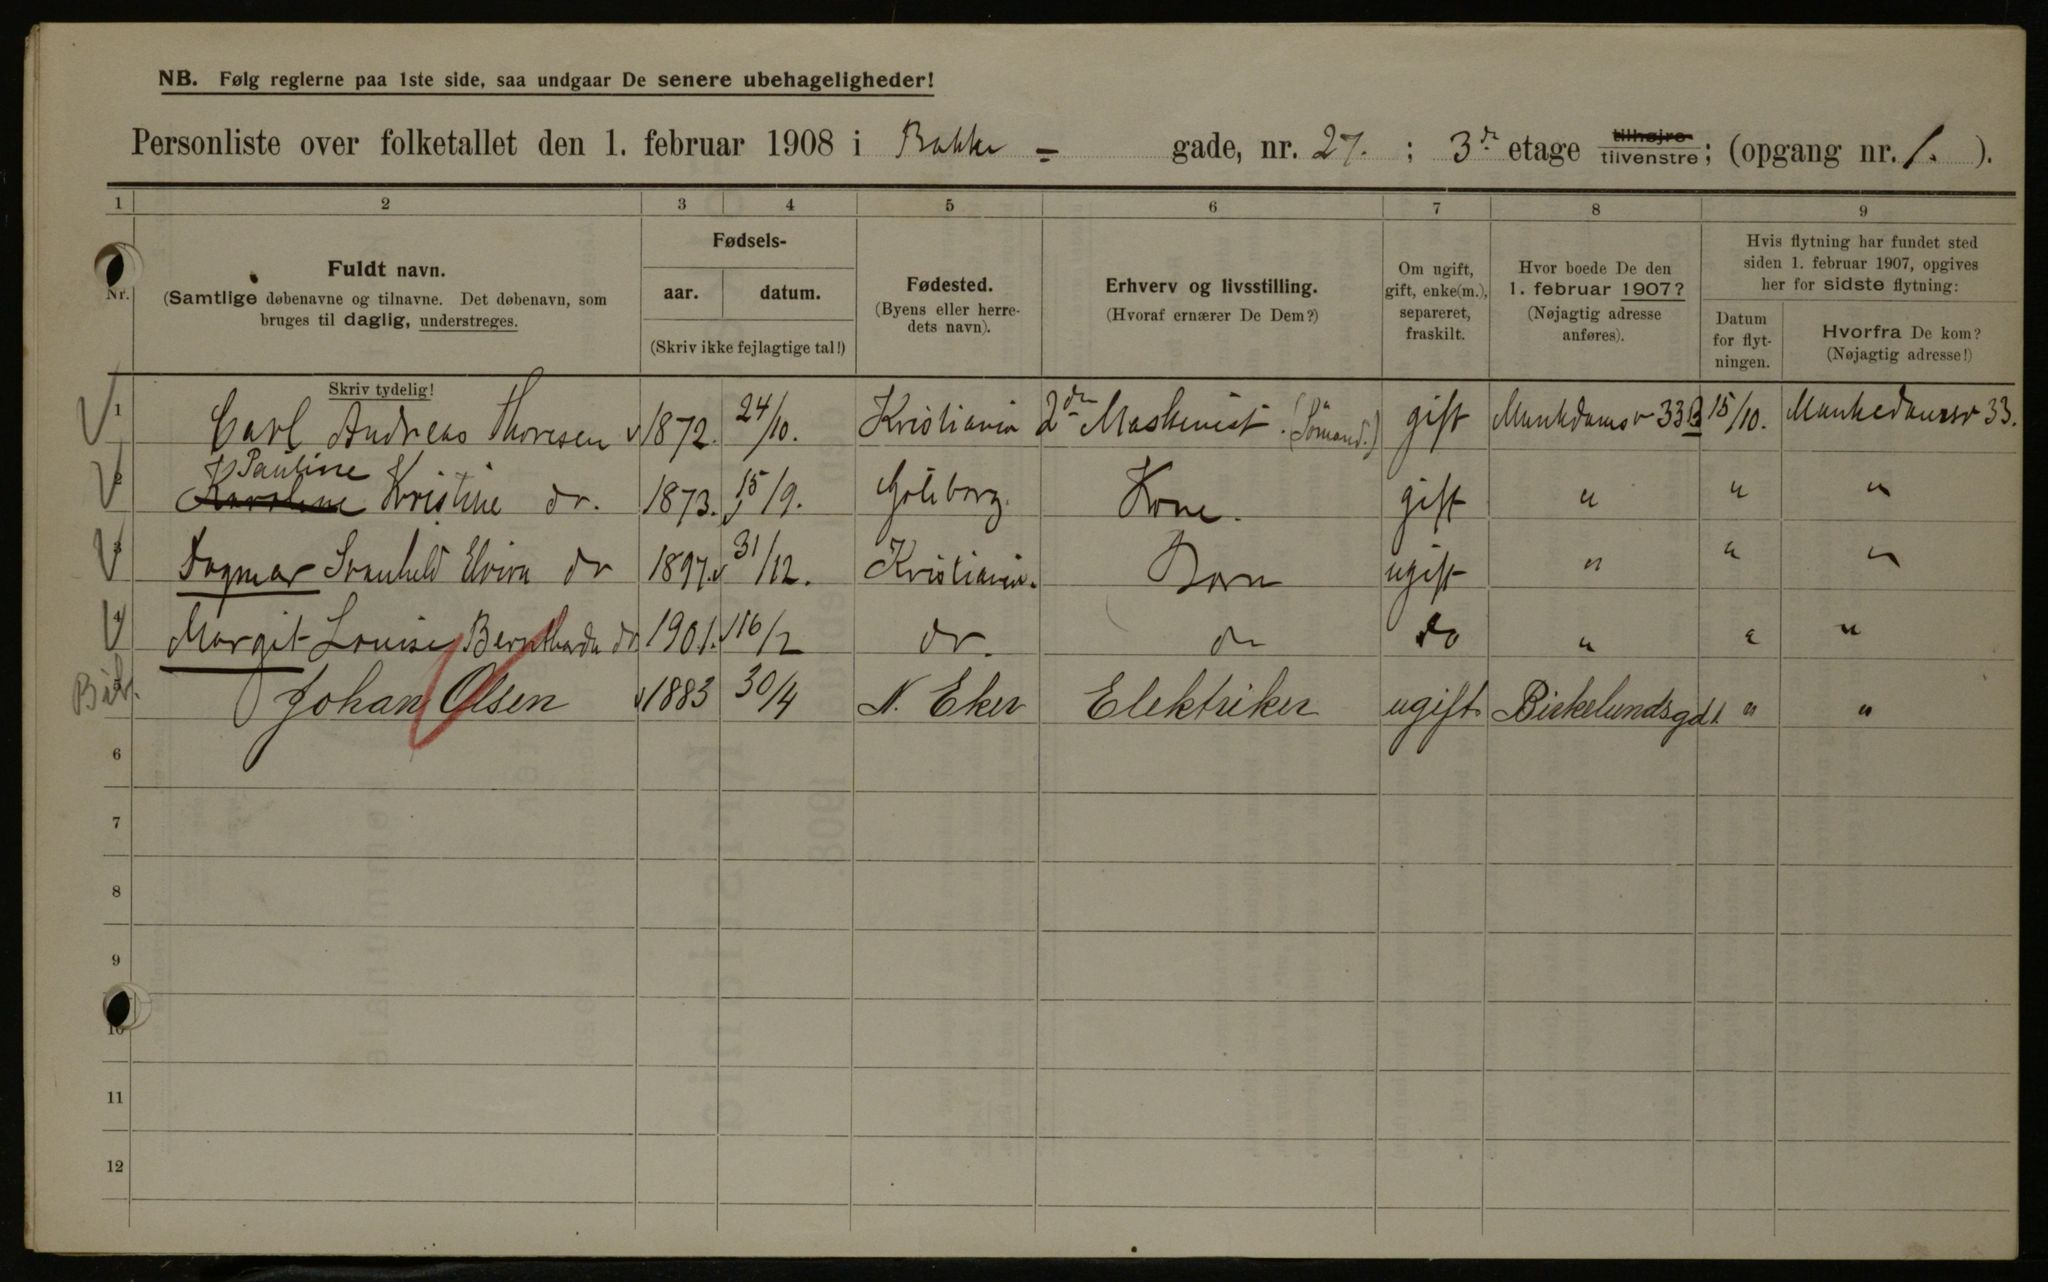 NB. Følg reglerne paa 1ste side, saa undgaar De senere ubehageligheder!
Personliste over folketallet den 1. februar 1908 i Bakke - gade, nr. 27. ; 3de etage tilhøjre tilvenstre; (opgang nr. 1. ).
1 2 3 4 5 6 7 8 9
Nr.
Fuldt navn.
(Samtlige døbenavne og tilnavne. Det døbenavn, som
bruges til daglig, understreges.
Skriv tydelig!
Fødsels-
aar. datum.
(Skriv ikke fejlagtige tal!)
Fødested.
(Byens eller herre-
dets navn).
Erhverv og livsstilling.
(Hvoraf ernærer De Dem?)
Om ugift,
gift, enke(m.),
separeret,
fraskilt.
Hvor boede De den
1. februar 1907?
(Nøjagtig adresse
anføres).
Hvis flytning har fundet sted
siden 1. februar 1907, opgives
her for sidste flytning:
Datum
for flyt-
ningen.
Hvorfra De kom?
(Nøjagtig adresse!)
1 Carl Andreas Thoresen 1872. 24/10. Kristiania 2den Maskinist. (Sömand.) gift Munkdamsv 33B 15/10. Munkedamsv 33.
2 Pauline Karoline Kristine do. 1873. 15/9. Göteborg. Kone. gift " " "
3 Dagmar Svanhild Elvira do 1897. 31/12. Kristiania. Barn ugift " " "
4 Margit Louise Berntharda do 1901. 16/2 do. do do " " "
5 Johan Olsen 1883 30/4 N. Eker Elektriker ugift Birkelundsgd 1. " "
6
7
8
9
10
11
12